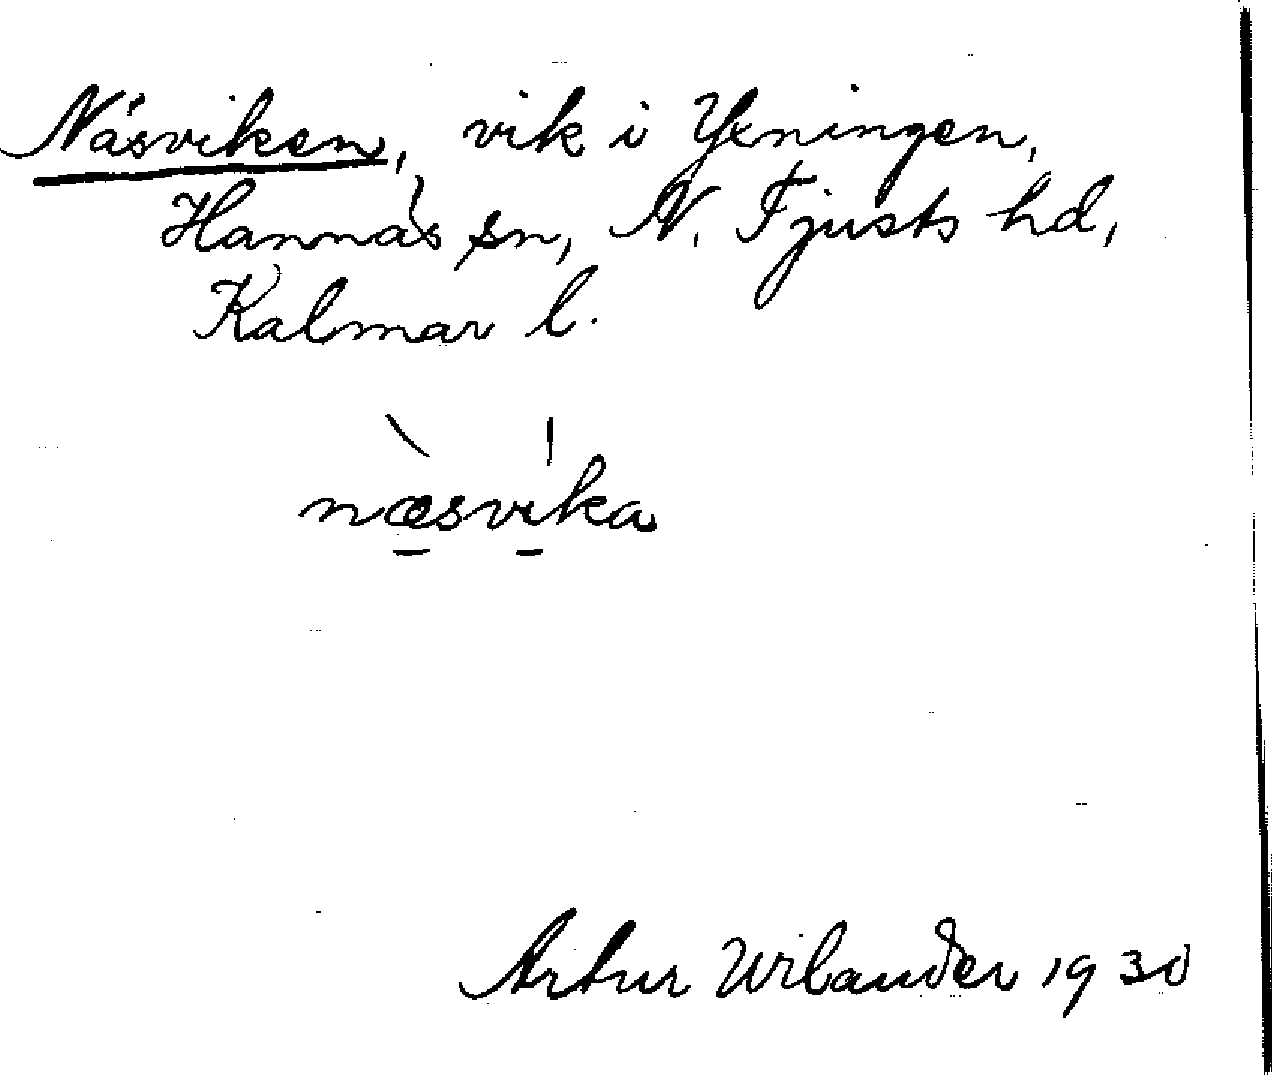 Näsviken, vik i Yxningen,
Hannäs sn, N. Tjusts hd,
Kalmar l.
næsvika
Artur Wilander 1930